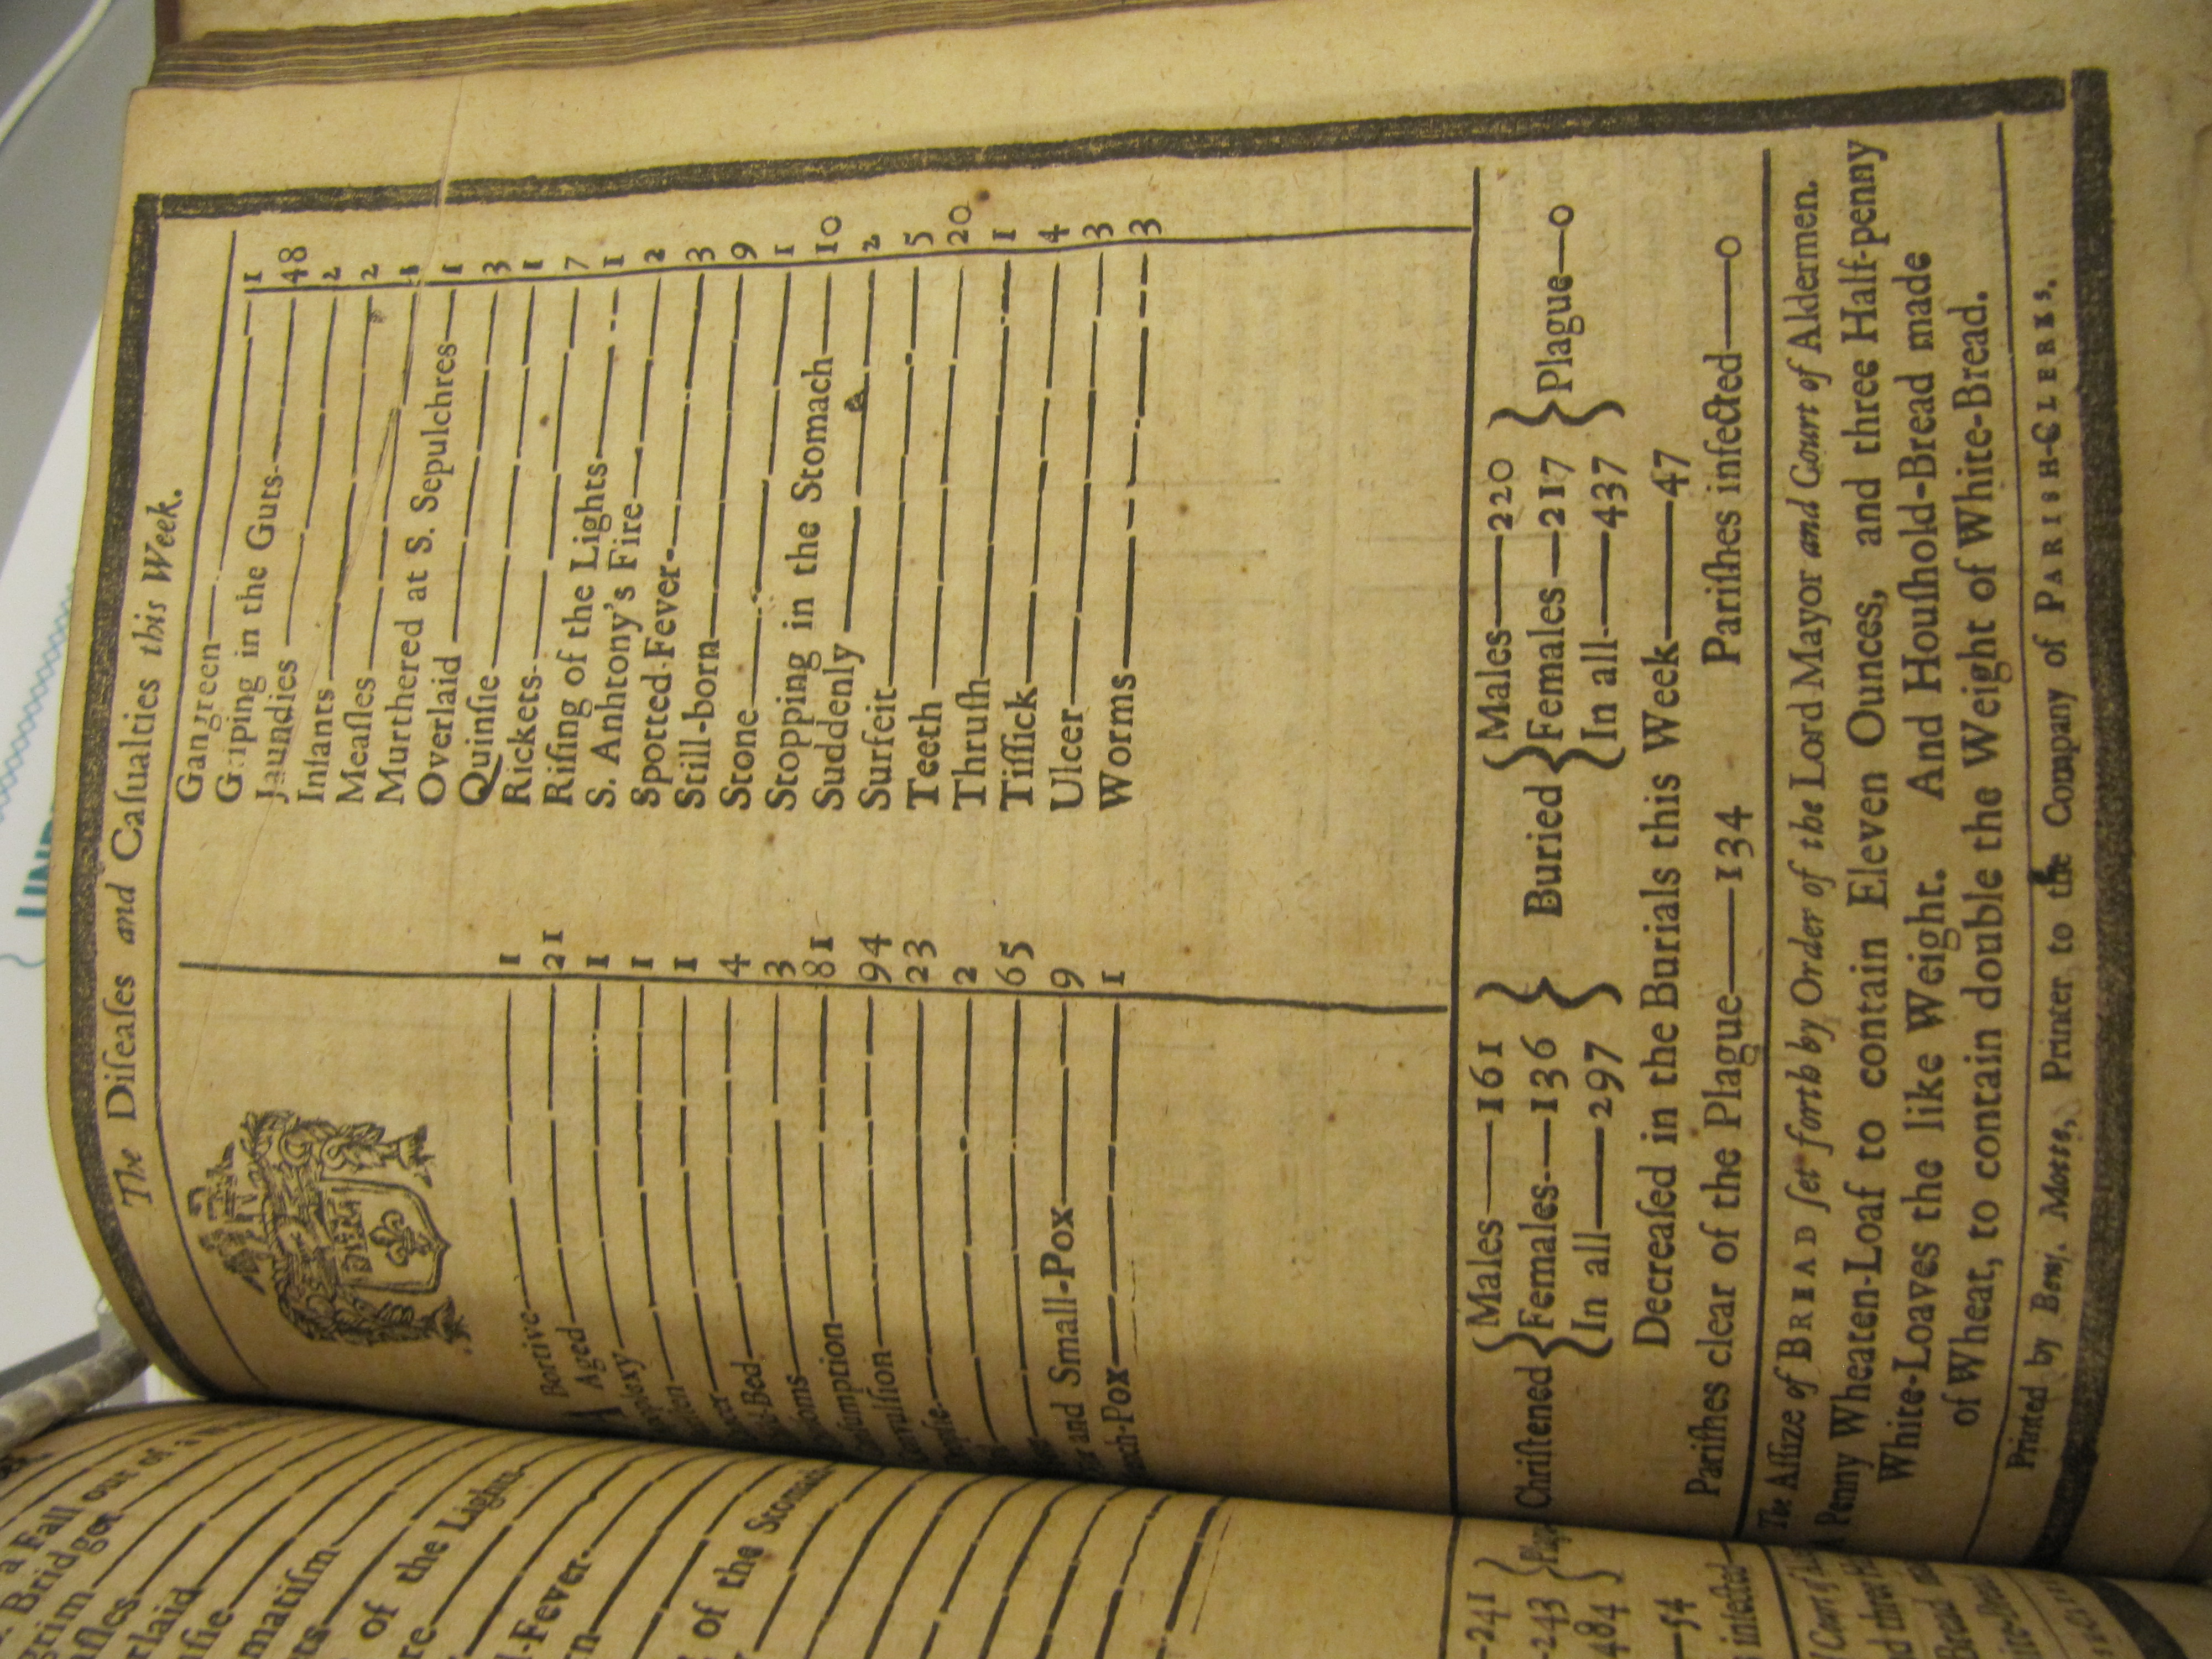 a Fall out of a
Bridget
erlaid
matiſm
of the Lights
-Fever
of the Stomach
-241
-243
484
-54
infected
The Diſeaſes and Caſualties this Week.
DIEU
A Bortive 1
Aged 21
oplexy 1
1
1
-Bed 4
ſoms 3
ſumption 81
vulſion 94
23
2
65
and Small-Pox 9
-Pox 1
Gangreen 1
Griping in the Guts 48
Jaundies 2
Infants 2
Meaſles 1
Murthered at S. Sepulchres 1
Overlaid 3
Quinſie 1
Rickets 7
Riſing of the Lights 1
S. Anhtony's Fire 2
Spotted-Fever 3
Still-born 9
Stone 1
Stopping in the Stomach 10
Suddenly 2
Surfeit 5
Teeth 20
Thruſh 1
Tiſſick 4
Ulcer 3
Worms 3
Males 161 Males 220
Chriſtened Females 136 Buried Females 217 Plague 0
In all 297 In all 437
Decreaſed in the Burials this Week 47
Pariſhes clear of the Plague 134 Pariſhes infected 0
The Aſſize of BREAD ſet forth by Order of the Lord Mayor and Court of Aldermen.
A Penny Wheaten-Loaf to contain Eleven Ounces, and three Half-penny
White-Loaves the like Weight. And Houſhold-Bread made
of Wheat, to contain double the Weight of White-Bread.
Printed by Benj. Motte, Printer to the Company of PARISH-CLERKS.